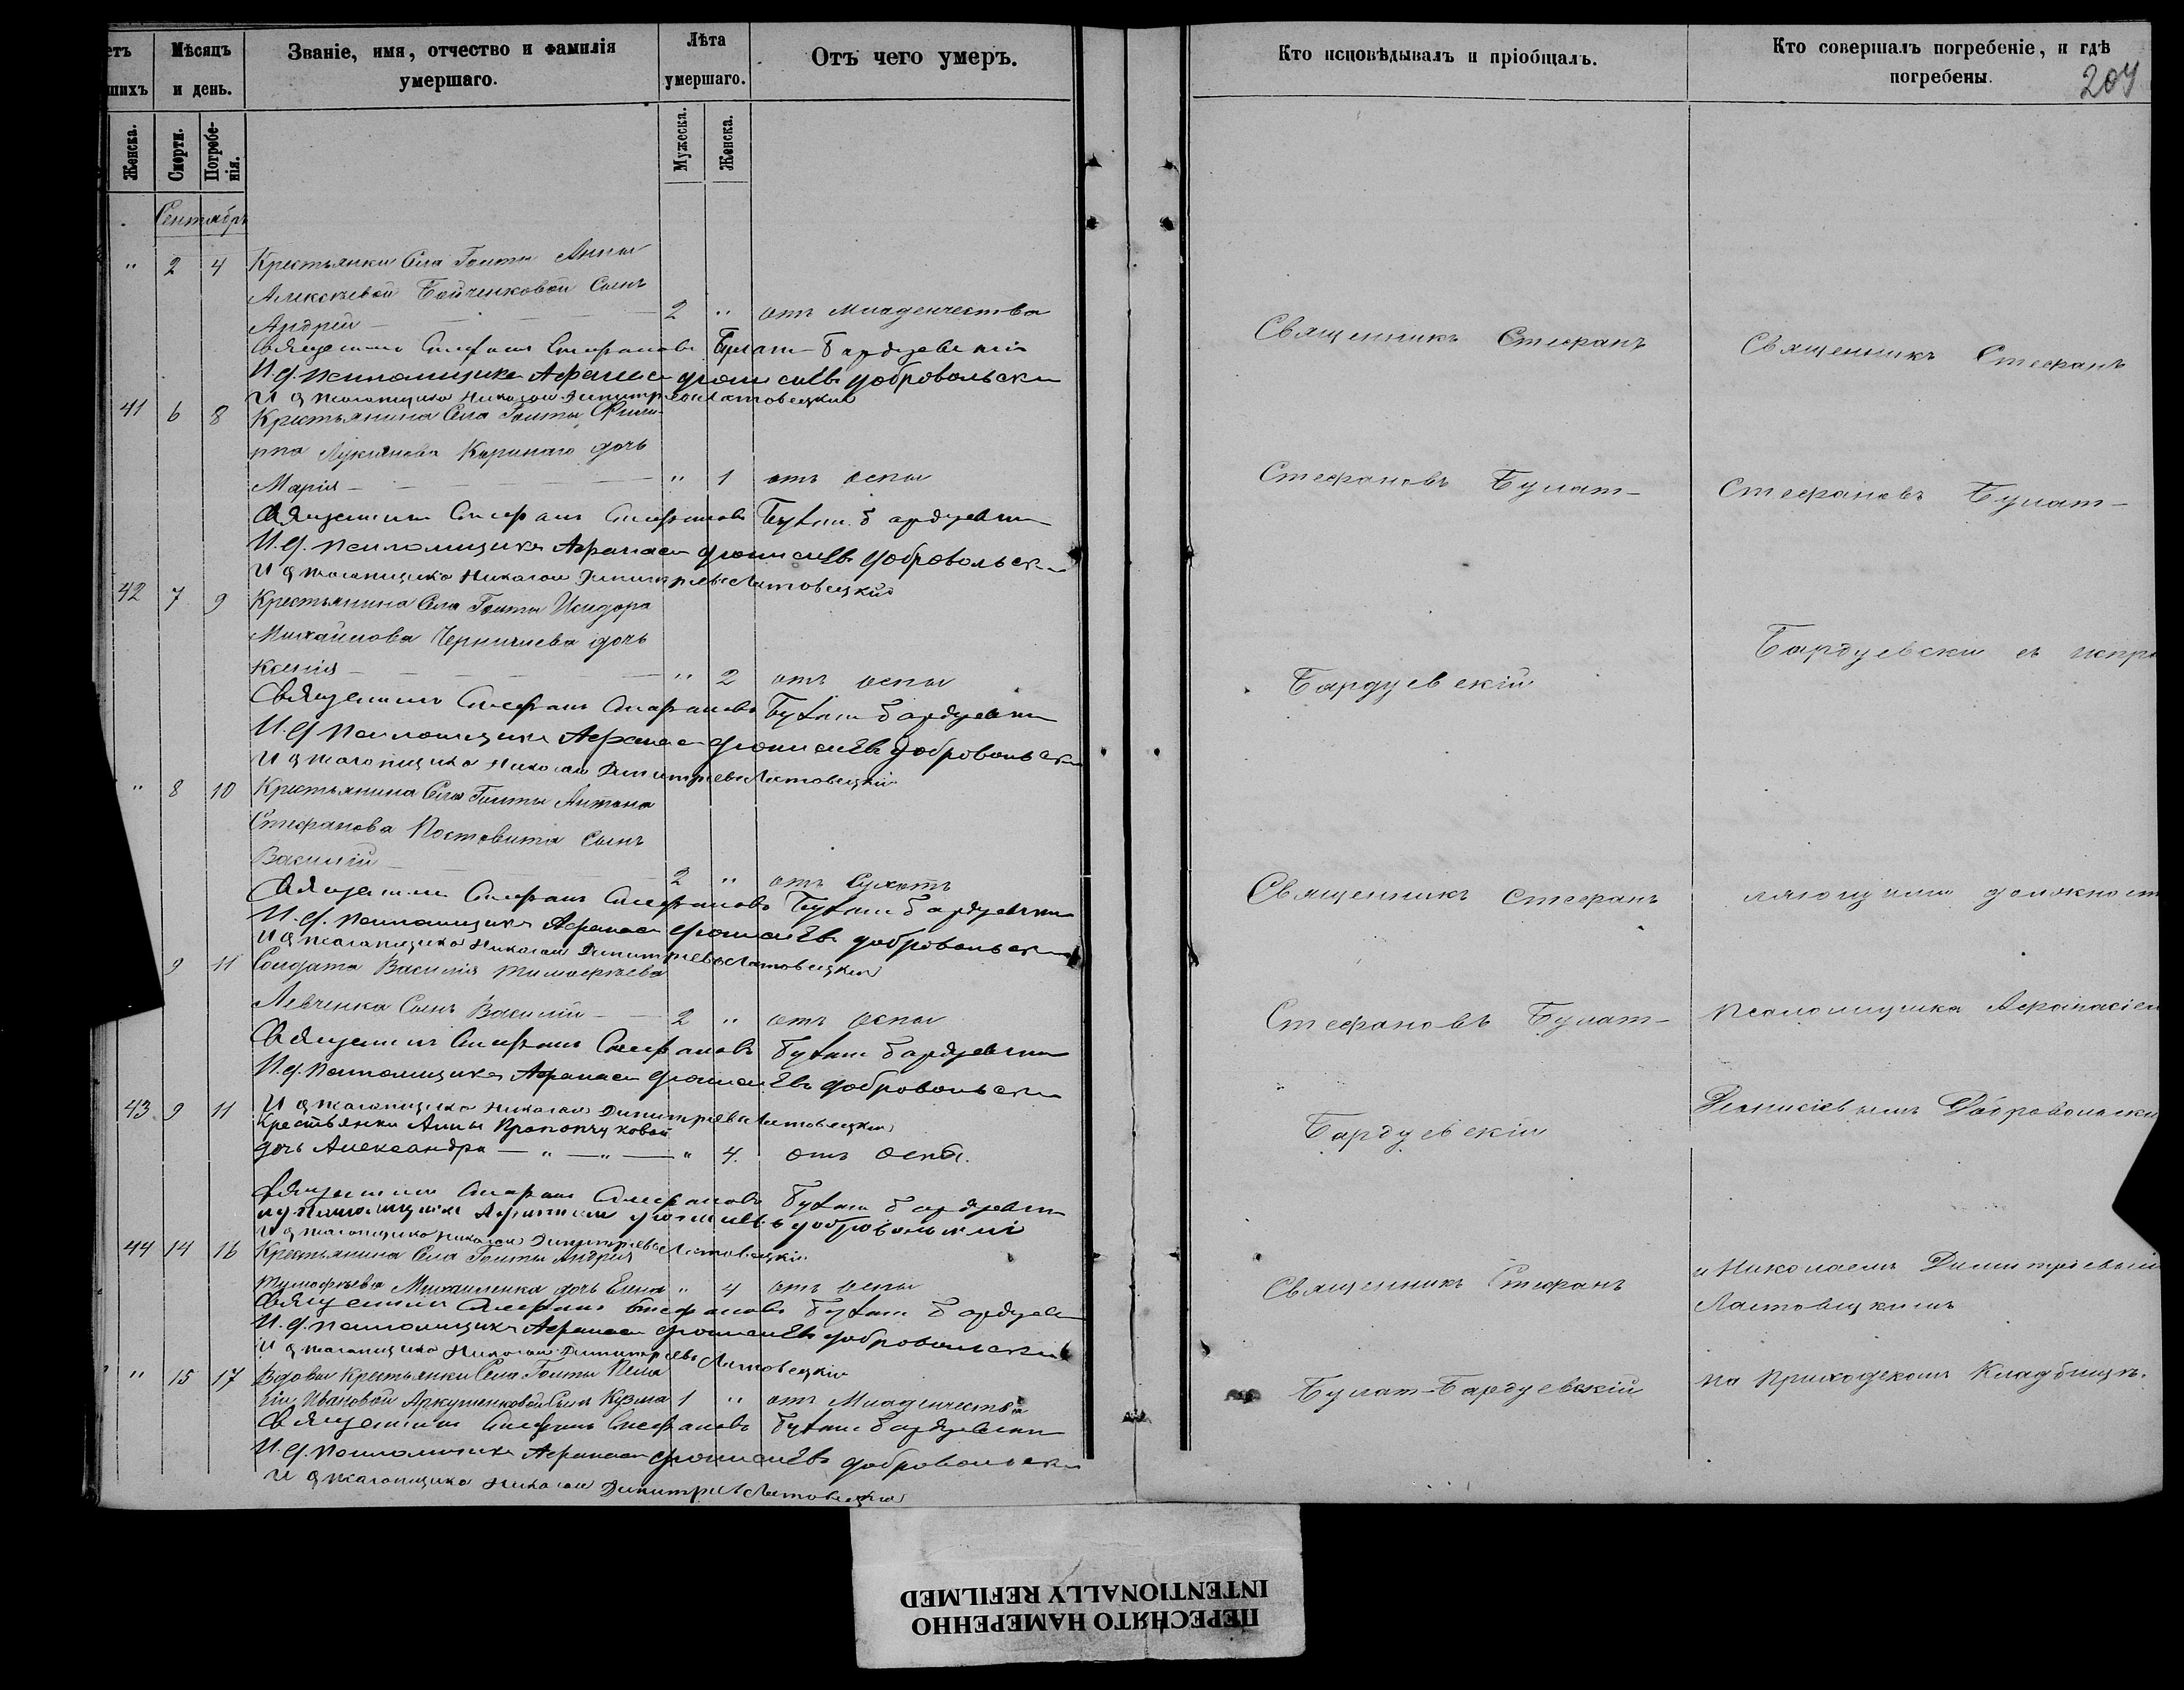 етъ
шихъ
Мѣсяцъ
и день.
Званіе, имя, отчество и фамилія
умершаго.
Лѣта
умершаго.
Отъ чего умеръ.
Женска.
Смерти.
Погребе-
нія.
Мужеска.
Женска.
Сентябрь
" 2 4 Крестьянки Села Голты Анны
Алексѣевой Бойченковой Сынъ
Андрей 2 " отъ Младенчества
Священникъ Стефанъ Стефановъ Булат-Бардуевскій
И. д. псаломщика Афанасій Діонисіевъ Добровольскій
И д псаломщика Николай Димитріевъ Лятовецкій
41 6 8 Крестьянина Села Голты Фили-
ппа Лукіянова Кириного дочь
Марія " 1 отъ оспы
Священникъ Стефанъ Стефановъ Булат-Бардуевскій
И. д. псаломщика Афанасій Діонисіевъ Добровольскій
И д псаломщика Николай Димитріевъ Лятовецкій
42 7 9 Крестьянина Села Голты Исидора
Михайлова дочь
Ксенія " 2 отъ оспы
Священникъ Стефанъ Стефановъ Булат-Бардуевскій
И. д. псаломщика Афанасій Діонисіевъ Добровольскій
И д псаломщика Николай Димитріевъ Лятовецкій
" 8 10 Крестьянина Села Голты Антона
Стефанова Постовита Сынъ
Василій 2 " отъ Сухотъ
Священникъ Стефанъ Стефановъ Булат-Бардуевскій
И. д. псаломщика Афанасій Діонисіевъ Добровольскій
И д псаломщика Николай Димитріевъ Лятовецкій
9 11 Солдата Василія Тимофѣева
Левченка Сынъ Василій 2 " отъ оспы
Священникъ Стефанъ Стефановъ Булат-Бардуевскій
И. д. псаломщика Афанасій Діонисіевъ Добровольскій
И д псаломщика Николай Димитріевъ Лятовецкій
43 9 11 Крестьянки Анны Прокопчуковой
дочь Александра " 4. отъ оспы.
Священникъ Стефанъ Стефановъ Булат-Бардуевскій
и д. псаломщика Афанасій Діонисіевъ Добровольскій
И д псаломщика Николай Димитріевъ Лятовецкій
44 14 16 Крестьянина Села Голты Андрея
Тимофѣева Михайленка дочь Елена " 4 отъ оспы
Священникъ Стефанъ Стефановъ Булат-Бардуевскій
И. д. псаломщика Афанасій Діонисіевъ Добровольскій
И д псаломщика Николай Димитріевъ Лятовецкій
" 15 17 Вдовы Крестьянки Села Голты Пела
гіи Ивановой Сынъ Кузма 1 " отъ Младенчества
Священникъ Стефанъ Стефановъ Булат-Бардуевскій
И. д. псаломщика Афанасій Діонисіевъ Добровольскій
И д псаломщика Николай Димитріевъ Лятовецкій
Кто исповѣдывалъ и пріобщалъ.
Священникъ Стефанъ
Стефановъ Булат-
Бардуевскій
Священникъ Стефанъ
Стефановъ Булат-
Бардуевскій
Священникъ Стефанъ
Булат-Бардуевскій
Кто совершалъ погребеніе, и гдѣ
погребены.
207
Священникъ Стефанъ
Стефановъ Булат-
Бардуевскій съ испра
вляющими должност
псаломщика Афанасіем
Діонисіевымъ Добровольски
и Николаемъ Димитріевымъ
Лятовецкимъ
на приходскомъ Кладбищѣ.
ПЕРЕСНЯТО НАМЕРЕННО
INTENTIONALLY REFILMED